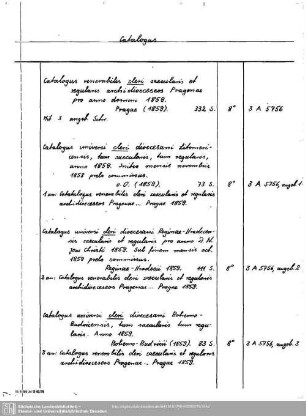 Catalogus
Catalogus venerabilis cleri saecularis et
regularis archidioeceseos Pragenae
pro anno domini 1859.
Pragae (1859). 332 S. 8° 3 A 5756
Mit 3 angeb. Schr.
Catalogus universi cleri dioecesani Litomeri-
censis, tum saecularis, tum regularis,
anno 1859. Initio mensis novembris
1858 prelo commissus.
o. O. (1859). 73 S. 8° 3 A 5756, angeb. 1
1 an: Catalogus venerabilis cleri saecularis et regularis
archidioeceseos Pragenae... Pragae 1859.
Catalogus universi cleri dioecesani Reginae-Hradecen-
sis saecularis et regularis pro anno D. N.
Jesu Christi 1859. Sub finem mensis oct.
1858 prelo commissus.
Reginae-Hradecii 1859. 111 S. 8° 3 A 5756, angeb. 2
2 an: Catalogus venerabilis cleri saecularis et regularis
archidioeceseos Pragenae... Pragae 1859.
Catalogus universi cleri dioecesani Bohemo-
Budvicensis, tum saecularis tum regu-
laris. Anno 1859.
Bohemo-Budvicii (1859). 83 S. 8° 3 A 5756, angeb. 3
3 an: Catalogus venerabilis cleri saecularis et regularis
archidioeceseos Pragenae... Pragae 1859.